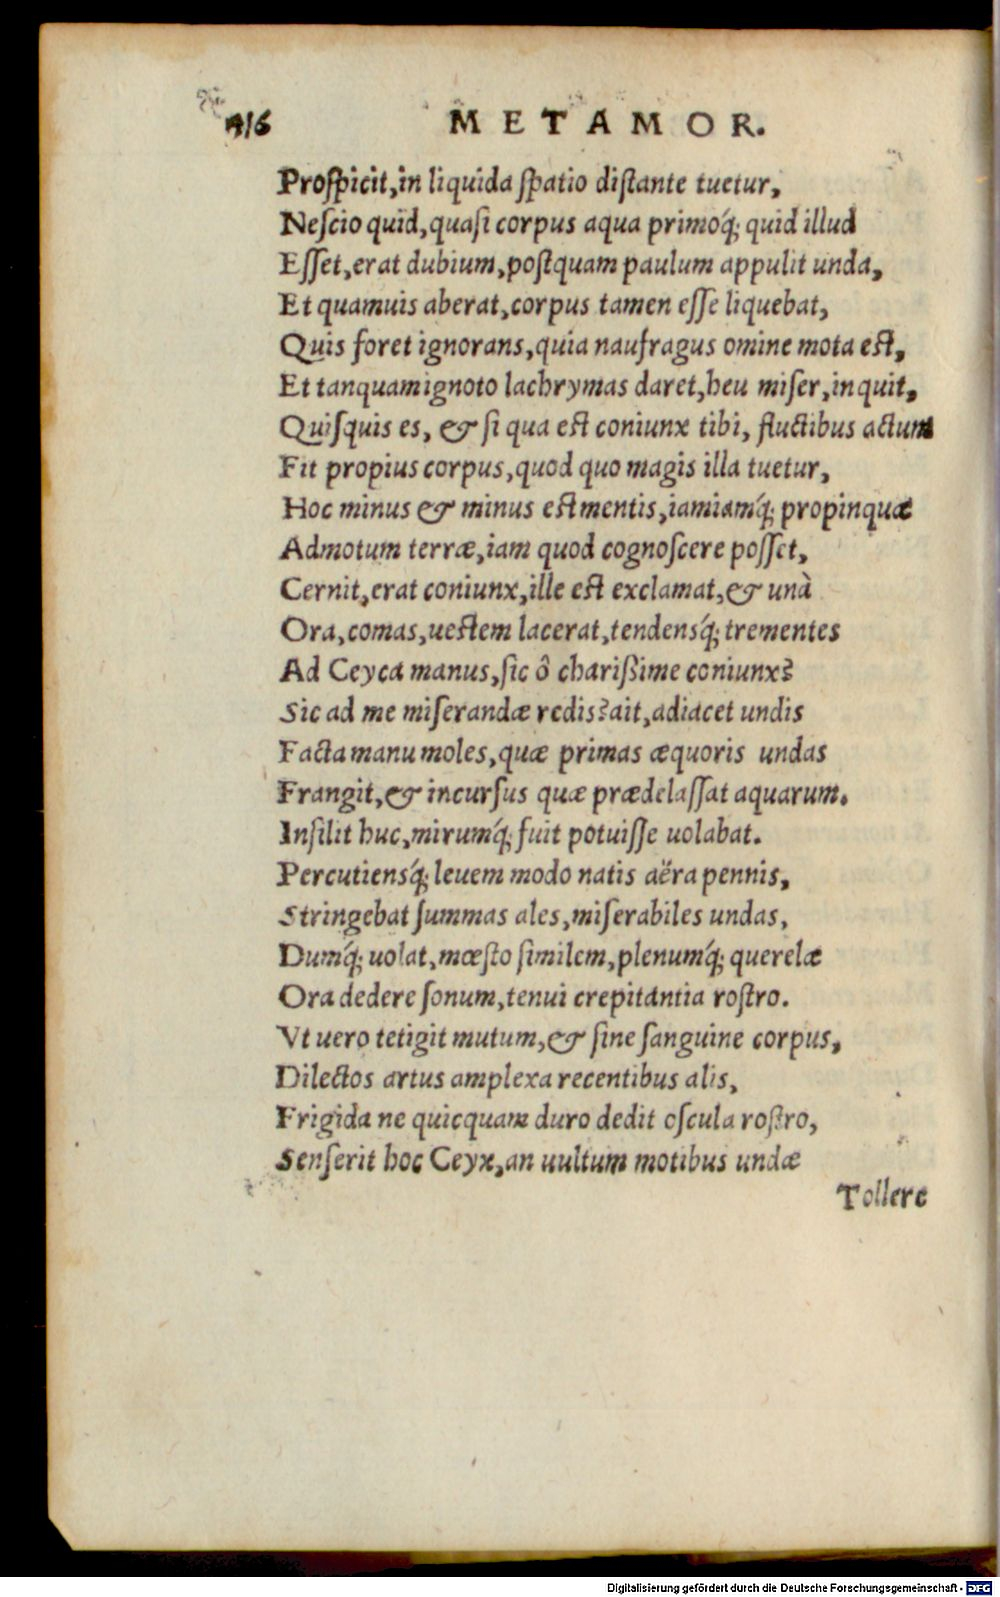 416 METAMOR.
Proſpicit,in liquida ſpatio diſtante tuetur,
Neſcio quid,quaſi corpus aqua primoq́; quid illud
Eſſet,erat dubium,poſtquam paulum appulit unda,
Et quamuis aberat,corpus tamen eſſe liquebat,
Quis foret ignorans,quia naufragus omine mota eſt,
Et tanquam ignoto lachrymas daret,heu miſer,inquit,
Quiſquis es, & ſi qua eſt coniunx tibi, fluctibus actum
Fit propius corpus,quod quo magis illa tuetur,
Hoc minus & minus eſt mentis,iamiamq́; propinquæ
Admotum terræ,iam quod cognoſcere poſſet,
Cernit,erat coniunx,ille eſt exclamat,& unà
Ora,comas,ueſtem lacerat,tendensq́; trementes
Ad Ceyca manus,ſic ô charißime coniunx?
Sic ad me miſerandæ redis?ait,adiacet undis
Facta manu moles,quæ primas æquoris undas
Frangit,& incurſus quæ prædelaſſat aquarum.
Inſilit huc,mirumq́; fuit potuiſſe uolabat.
Percutiensq́; leuem modo natis aëra pennis,
Stringebat ſummas ales,miſerabiles undas,
Dumq́; uolat,mœſto ſimilem,plenumq́; querelæ
Ora dedere ſonum,tenui crepitantia roſtro.
Vt uero tetigit mutum,& ſine ſanguine corpus,
Dilectos artus amplexa recentibus alis,
Frigida ne quicquam duro dedit oſcula roſtro,
Senſerit hoc Ceyx,an uultum motibus undæ
Tollere
Digitalisierung gefördert durch die Deutsche Forschungsgemeinschaft - DFG